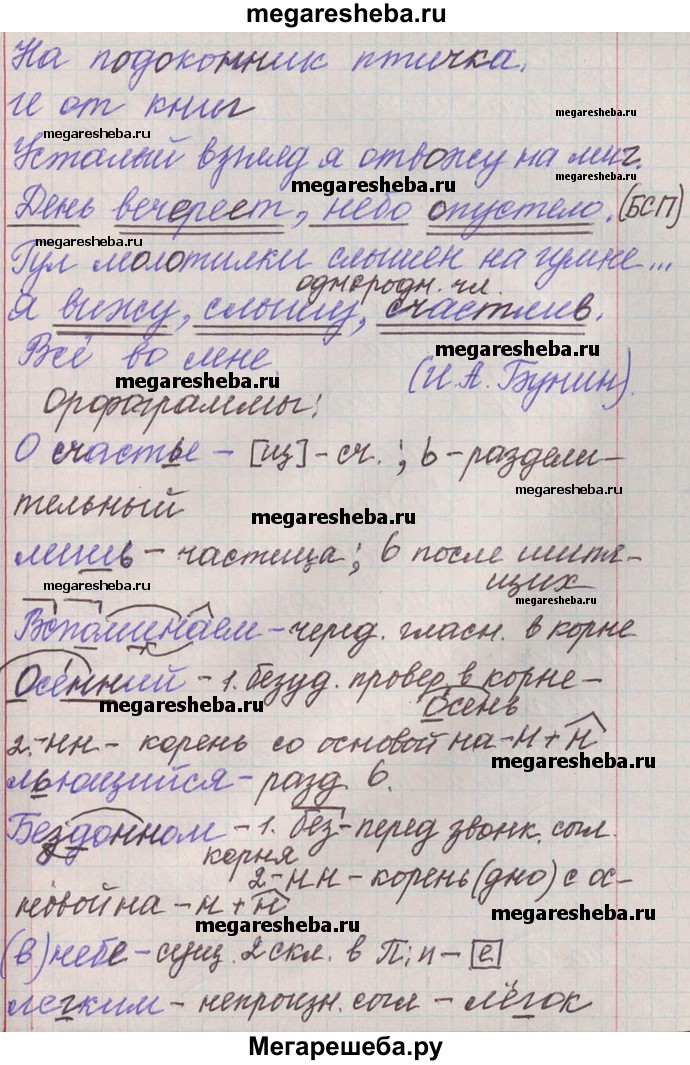 megaresheba.ru
На подоконник птичка.
megaresheba.ru
И от книг
megaresheba.ru
megaresheba.ru
Усталый взгляд я отвожу на миг.
megaresheba.ru
День вечереет, небо опустело. (БСП)
Гул молотилки слышен на гумне...
однородн. чл.
Я вижу, слышу, счастлив.
megaresheba.ru
Всё во мне.
megaresheba.ru
(И. А. Бунин).
Орфограммы:
О счастье – [щ] – сч.; ь – раздели-
megaresheba.ru
тельный
megaresheba.ru
лишь – частица; ь после шипя-
щих
megaresheba.ru
megaresheba.ru
Вспоминаем – черед. гласн. в корне
Осенний – 1. безуд. провер. в корне –
megaresheba.ru
осень
2. -нн- корень со основой на -н + н
megaresheba.ru
льющийся – разд. ь.
Бездонном – 1. без- перед звонк. сыл.
корня
2 -нн – корень (дно) с ос-
новой на – н + н
megaresheba.ru
(в) небе – сущ. 2 скл. в П.п – е
megaresheba.ru
легким – непроизн. сыл – лёгок
Мегарешеба.ру